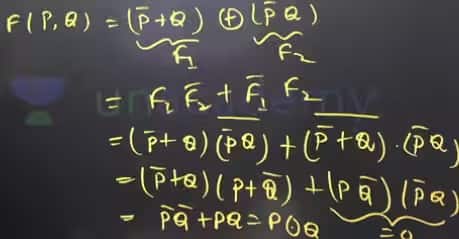 F(P,Q) = (P̅+Q) ⊕ (P̅ Q)
F₁ F₂
= F₁ F̅₂ + F̅₁ F₂
= (P̅+Q) (\overline{P̅Q}) + (\overline{P̅+Q}) · (P̅Q)
= (P̅+Q) (P+Q̅) + (P Q̅) (P̅Q)
= P̅Q̅ + PQ = P⊙Q = 0